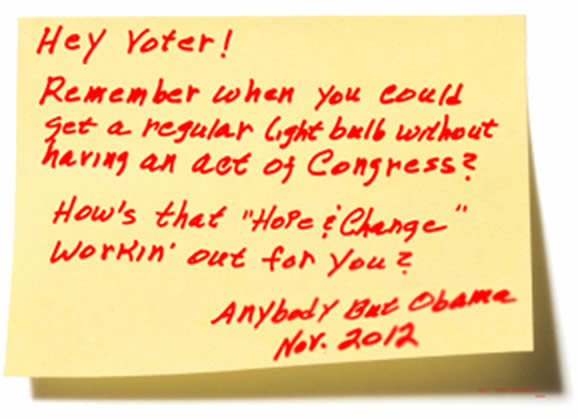 Hey Voter!
Remember when you could
get a regular light bulb without
having an act of Congress?
How's that "Hope & Change"
Workin' out for you?
Anybody But Obama
Nov. 2012